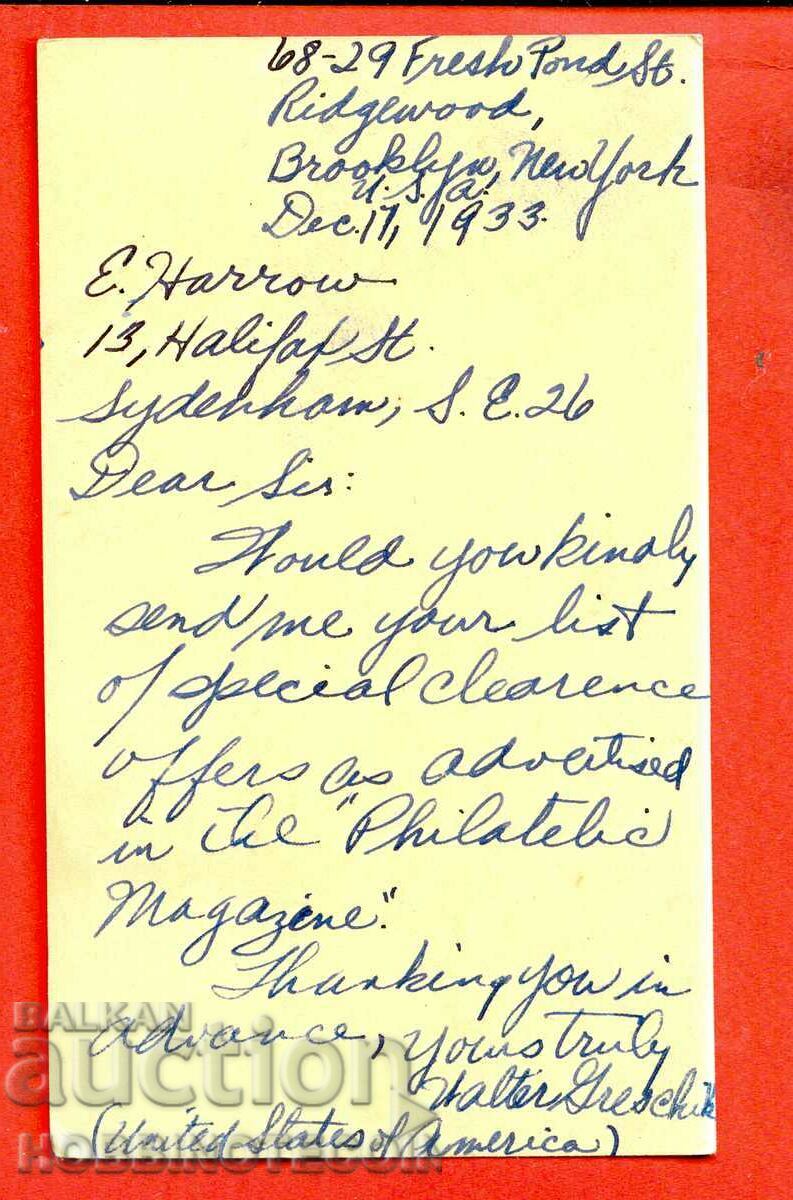 68-29 Fresh Pond St.
Ridgewood,
Brooklyn, New York
U.S.A.
Dec. 17, 1933.
E. Harrow
13, Halifax St.
Sydenham, S.E. 26
Dear Sir:
Would you kindly
send me your list
of special clearence
offers as advertised
in the "Philatelic
Magazine."
Thanking you in
advance, yours truly
Walter Greschik
(United States of America)
BALKAN
auction
HOBBINOTECOIN